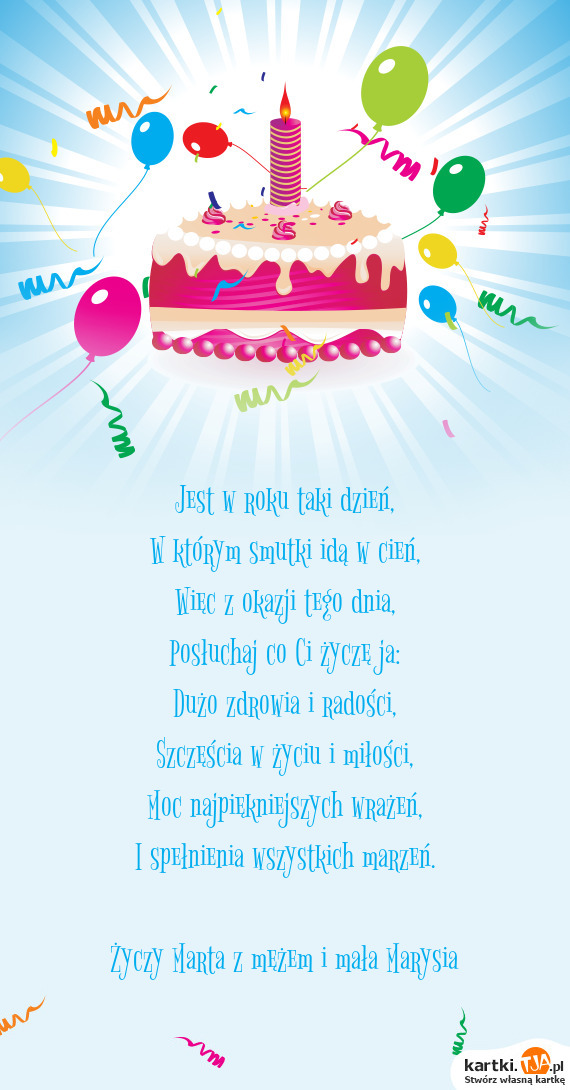 Jest w roku taki dzień,
W którym smutki idą w cień,
Więc z okazji tego dnia,
Posłuchaj co Ci życzę ja:
Dużo zdrowia i radości,
Szczęścia w życiu i miłości,
Moc najpiękniejszych wrażeń,
I spełnienia wszystkich marzeń.
Życzy Marta z mężem i mała Marysia
kartki.TJA.pl
Stwórz własną kartkę